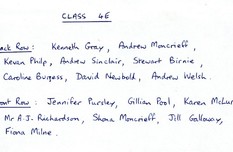 CLASS 4E
ack Row: Kenneth Gray, Andrew Moncrieff,
Kevan Philp, Andrew Sinclair, Stewart Birnie,
Caroline Burgess, David Newbold, Andrew Welsh.
ont Row: Jennifer Pursley, Gillian Pool, Karen McLu
Mr A.J. Richardson, Shona Moncrieff, Jill Galloway,
Fiona Milne.